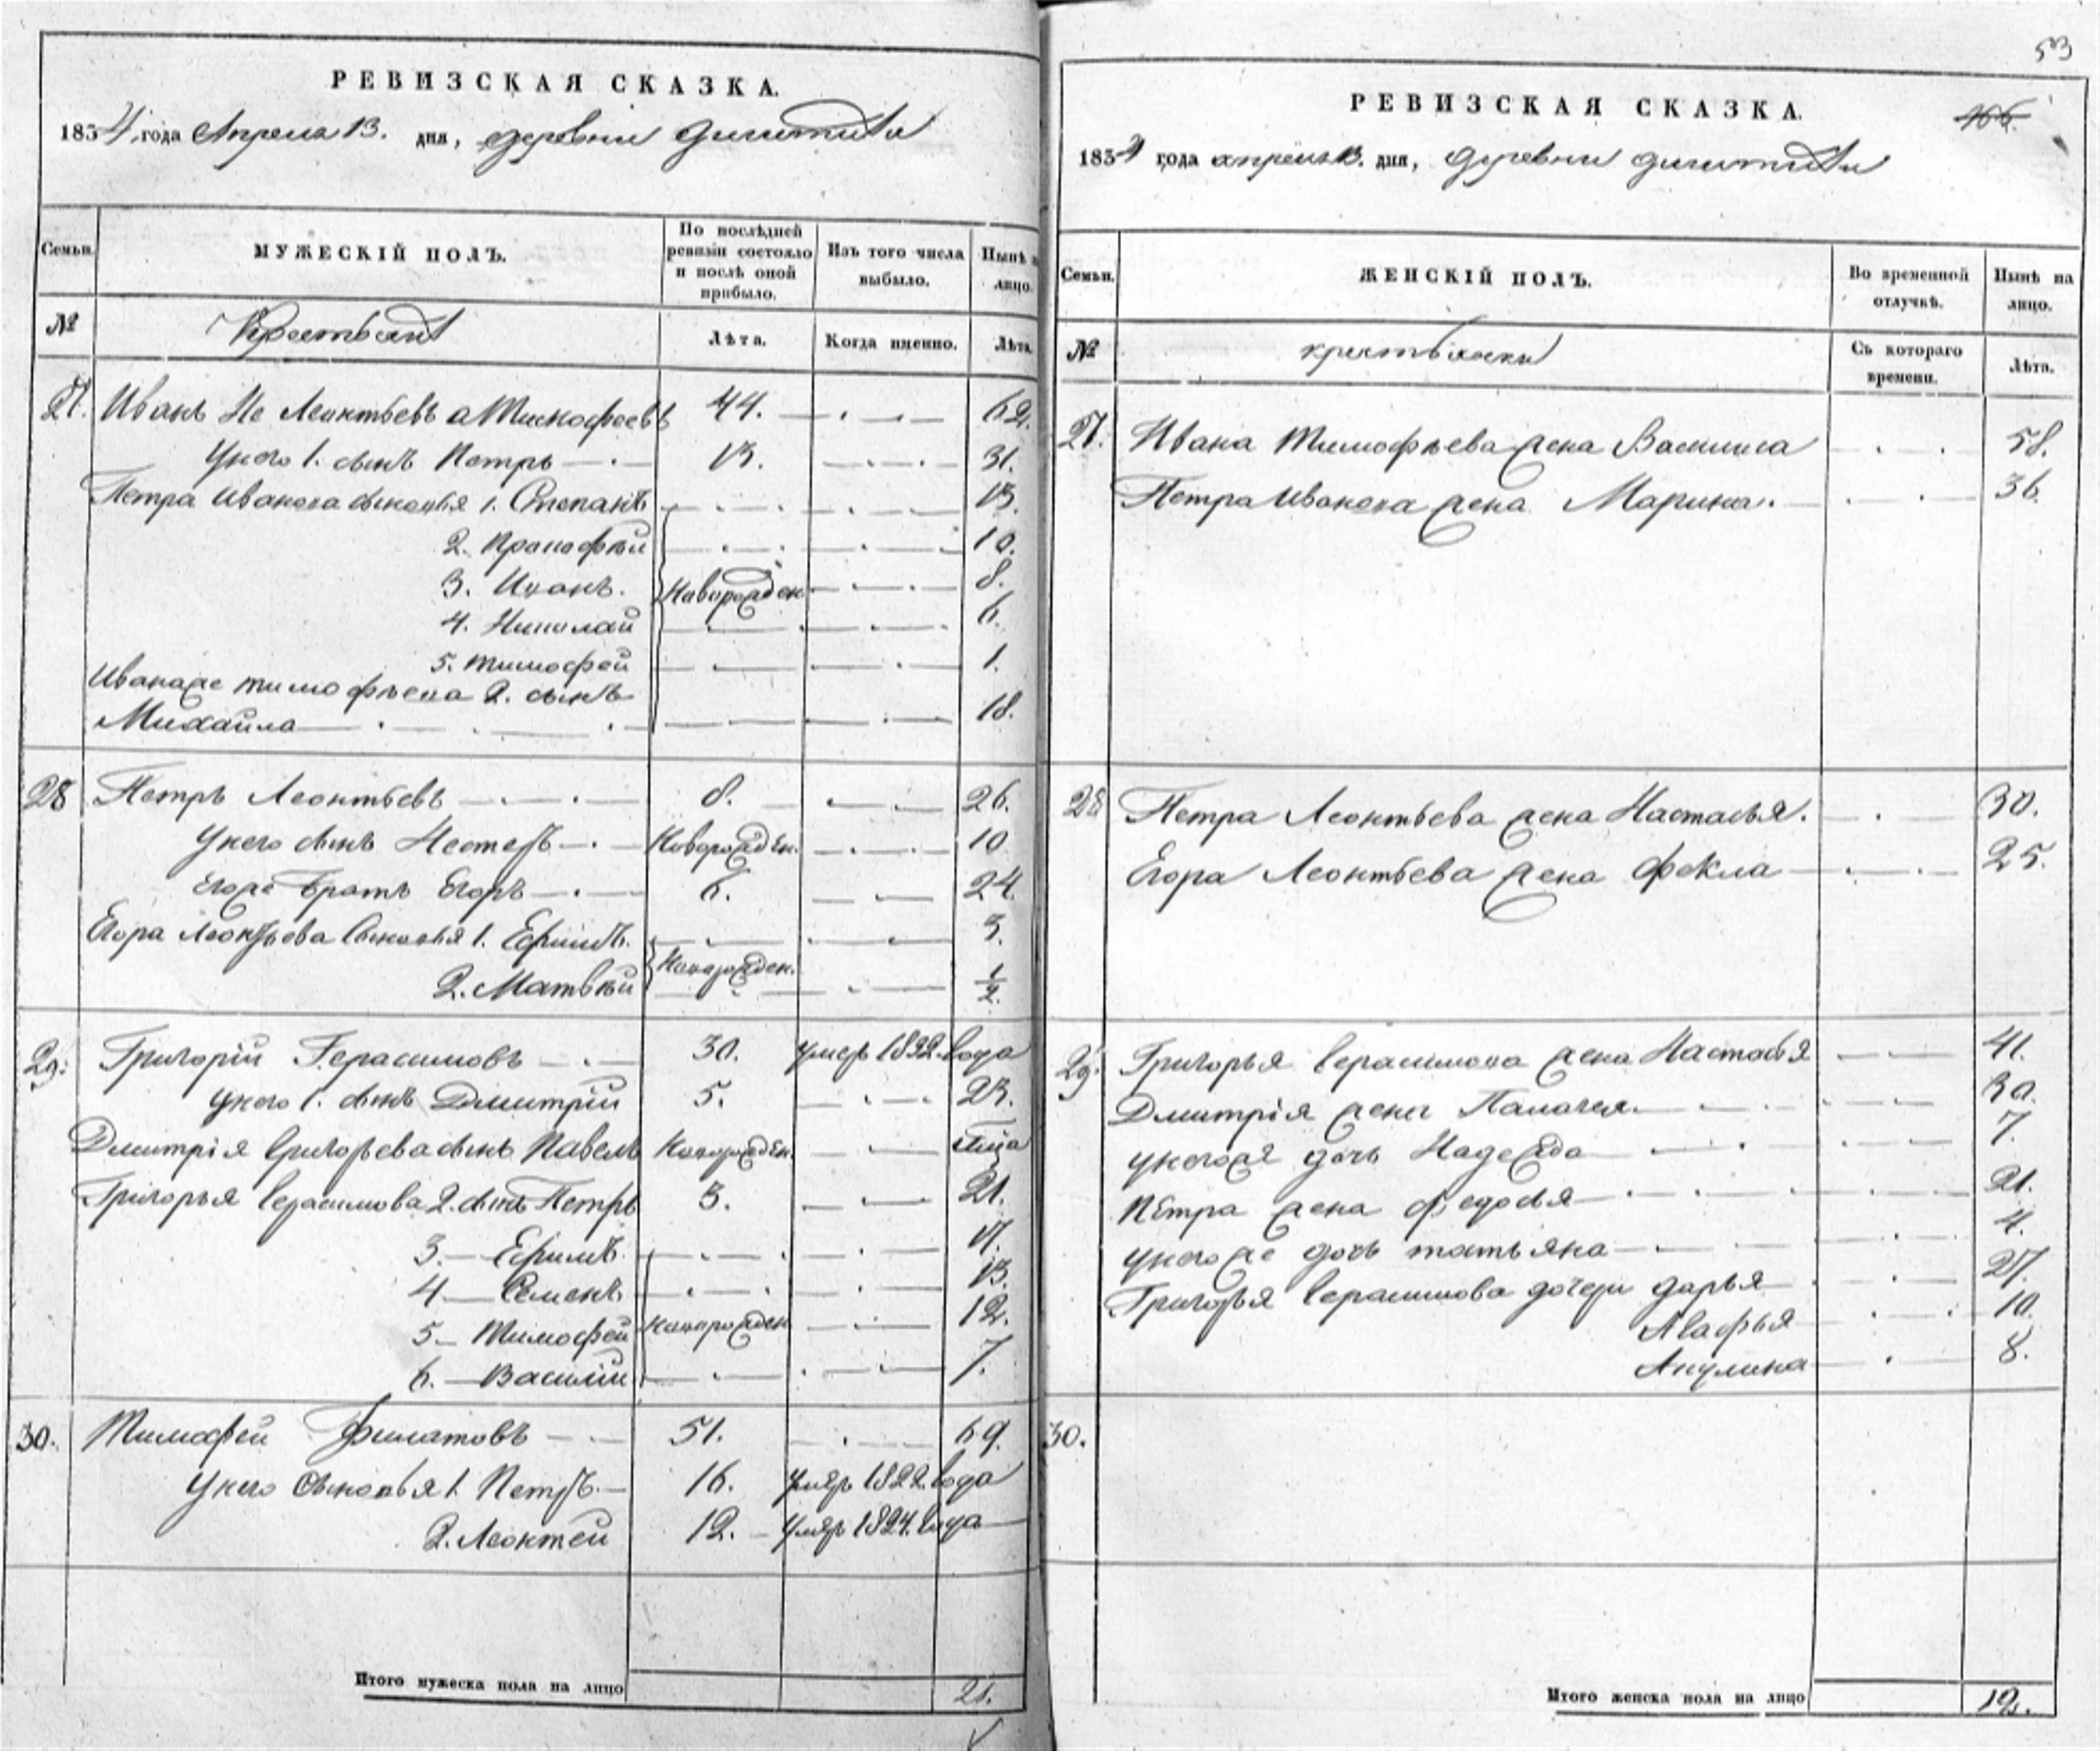 РЕВИЗСКАЯ СКАЗКА.
1834 года Апреля 13. дня, деревни
Семьи.
МУЖЕСКІЙ ПОЛЪ.
По послѣдней ревизіи состояло и послѣ оной прибыло.
Изъ того числа выбыло.
Нынѣ на лицо.
№
Крестьянъ
Лѣта.
Когда именно.
Лѣта.
27. Иванъ Не Леонтьевъ а Тимофеевъ 44. 62.
Унего 1. сынъ Петръ 13. 31.
Петра Иванова сыновья 1. Степанъ 13.
2. Прокофѣй 10.
3. Иванъ. Новорожден 8.
4. Николай 6.
5. Тимофей 1.
Иванаже тимофѣева 2. сынъ
Михайла 18.
28 Петръ Леонтьевъ 8. 26.
Унего сынъ Нестеръ Новорожден. 10
Егоже братъ Егоръ 6. 24.
Егора Леонтьева сыновья 1. Ефимъ. 3.
2. Матвѣй Новорожден. 1/2.
29. Григорій Герасимовъ 30. умеръ 1822. года
Унего 1. сынъ Дмитрій 5. 23.
Дмитрія Григорьева сынъ Павелъ Новорожден.
Григорья Герасимова 2. сынъ Петръ 3. 21.
3. Ефимъ 17.
4 Семенъ. 13.
5 Тимофей Новорожден 12.
6. Василій 7.
30. Тимофей Филатовъ 51. 69.
Унего сыновья 1. Петръ. 16. умеръ 1822. года
2. Леонтей 12. умеръ 1824. года
Итого мужеска пола на лицо 21.
53
РЕВИЗСКАЯ СКАЗКА.
166.
1834 года апреля 13. дня, деревни
Семьи.
ЖЕНСКІЙ ПОЛЪ.
Во временной отлучкѣ.
Нынѣ на лицо.
№
крестьянски
Съ котораго времени.
Лѣта.
27. Ивана Тимофѣева жена Василиса 58.
Петра Иванова жена Марина. 36.
28 Петра Леонтьева жена Настасья. 30.
Егора Леонтьева жена Фекла 25.
29. Григорья Герасимова жена Настасья 41.
Дмитрія жена Палагея. 30.
унегоже дочь Надежда 7.
Петра жена Федосья 21.
унегоже дочь татьяна 4.
Григорья Герасимова дочери дарья 27.
Агафья 10.
Акулина 8.
30.
Итого женска пола на лицо 12.